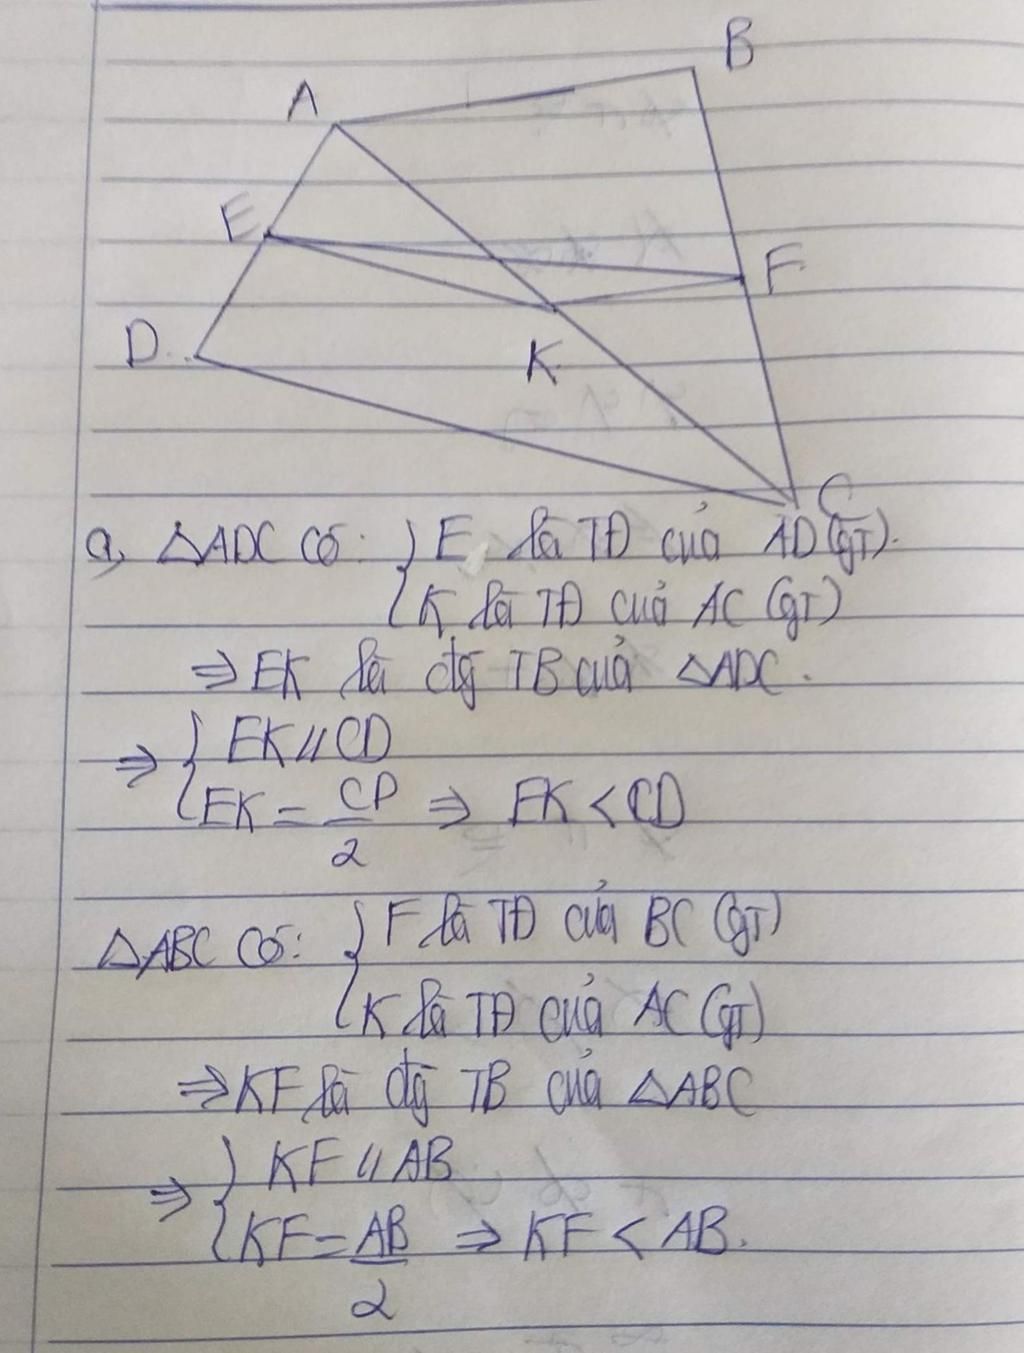 B
A
E
F
D
K
C
a, △ADC có: { E là TĐ của AD (GT).
K là TĐ của AC (GT)
⇒ EK là đg TB của △ADC.
⇒ { EK // CD
EK = CD/2 ⇒ EK < CD
△ABC có: { F là TĐ của BC (GT)
K là TĐ của AC (GT)
⇒ KF là đg TB của △ABC
⇒ { KF // AB
KF = AB/2 ⇒ KF < AB.